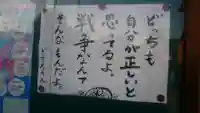 どっちも
自分が正しいと
思ってるよ。
戦争なんて
そんなもんだよ。